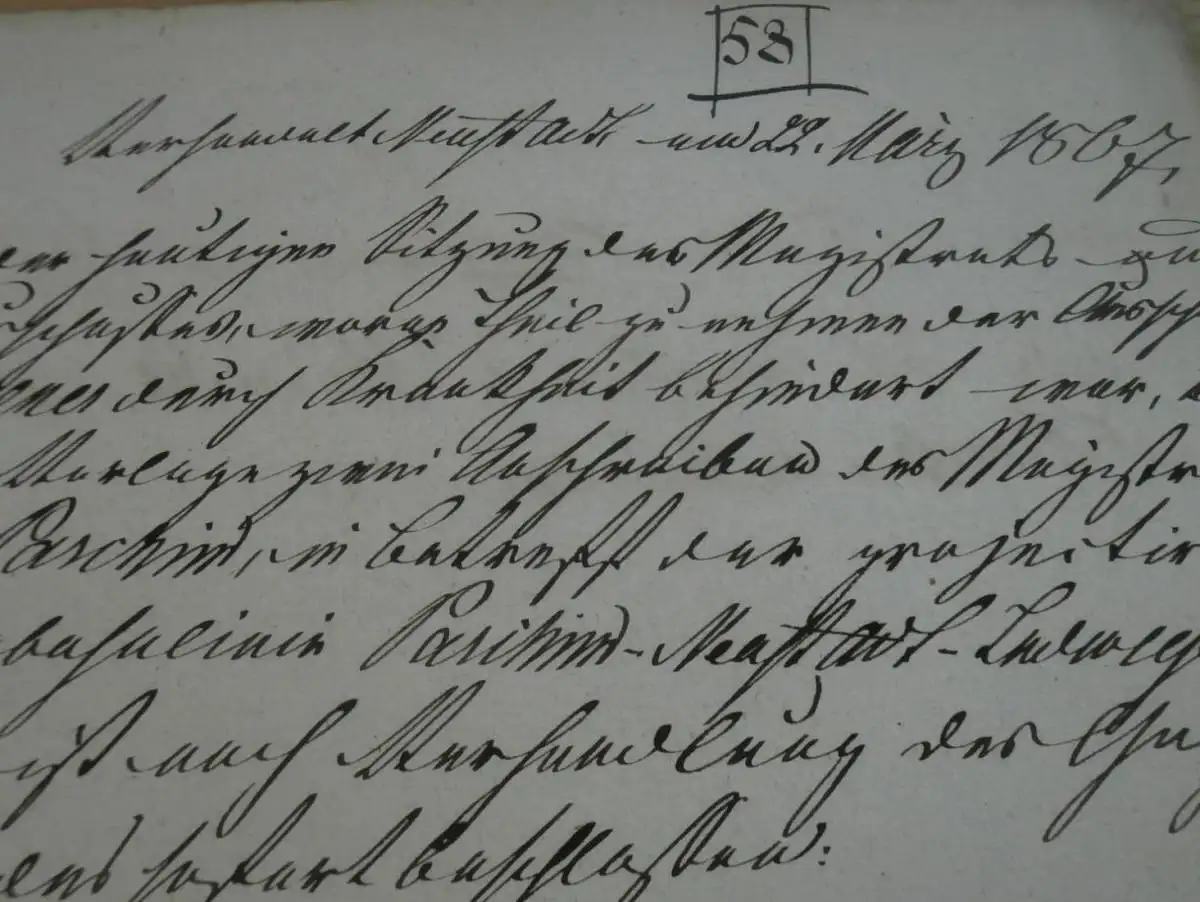 58
Verhandelt Neustadt am 22. März 1867.
der heutigen Sitzung des Magistrats
schusses, woran Theil zu nehmen der Aussch
durch Krankheit behindert war,
Vorlage zwei Anschreiben des Magistr
Parchim, in Betreff der projectir
bahnlinie Parchim-Neustadt-Ludwigs
ist nach Verhandlung des
sofort beschlossen: